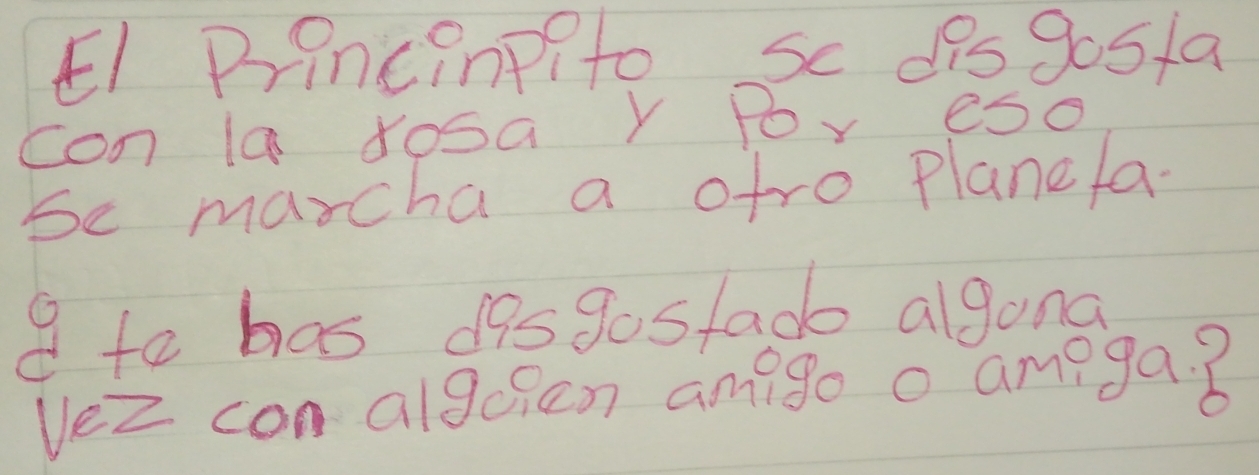 El Princinpito se disgusta
con la rosa y Por eso
se marcha a otro Planeta.
¿ te has disgustado alguna
Vez con alguien amigo o amiga.?